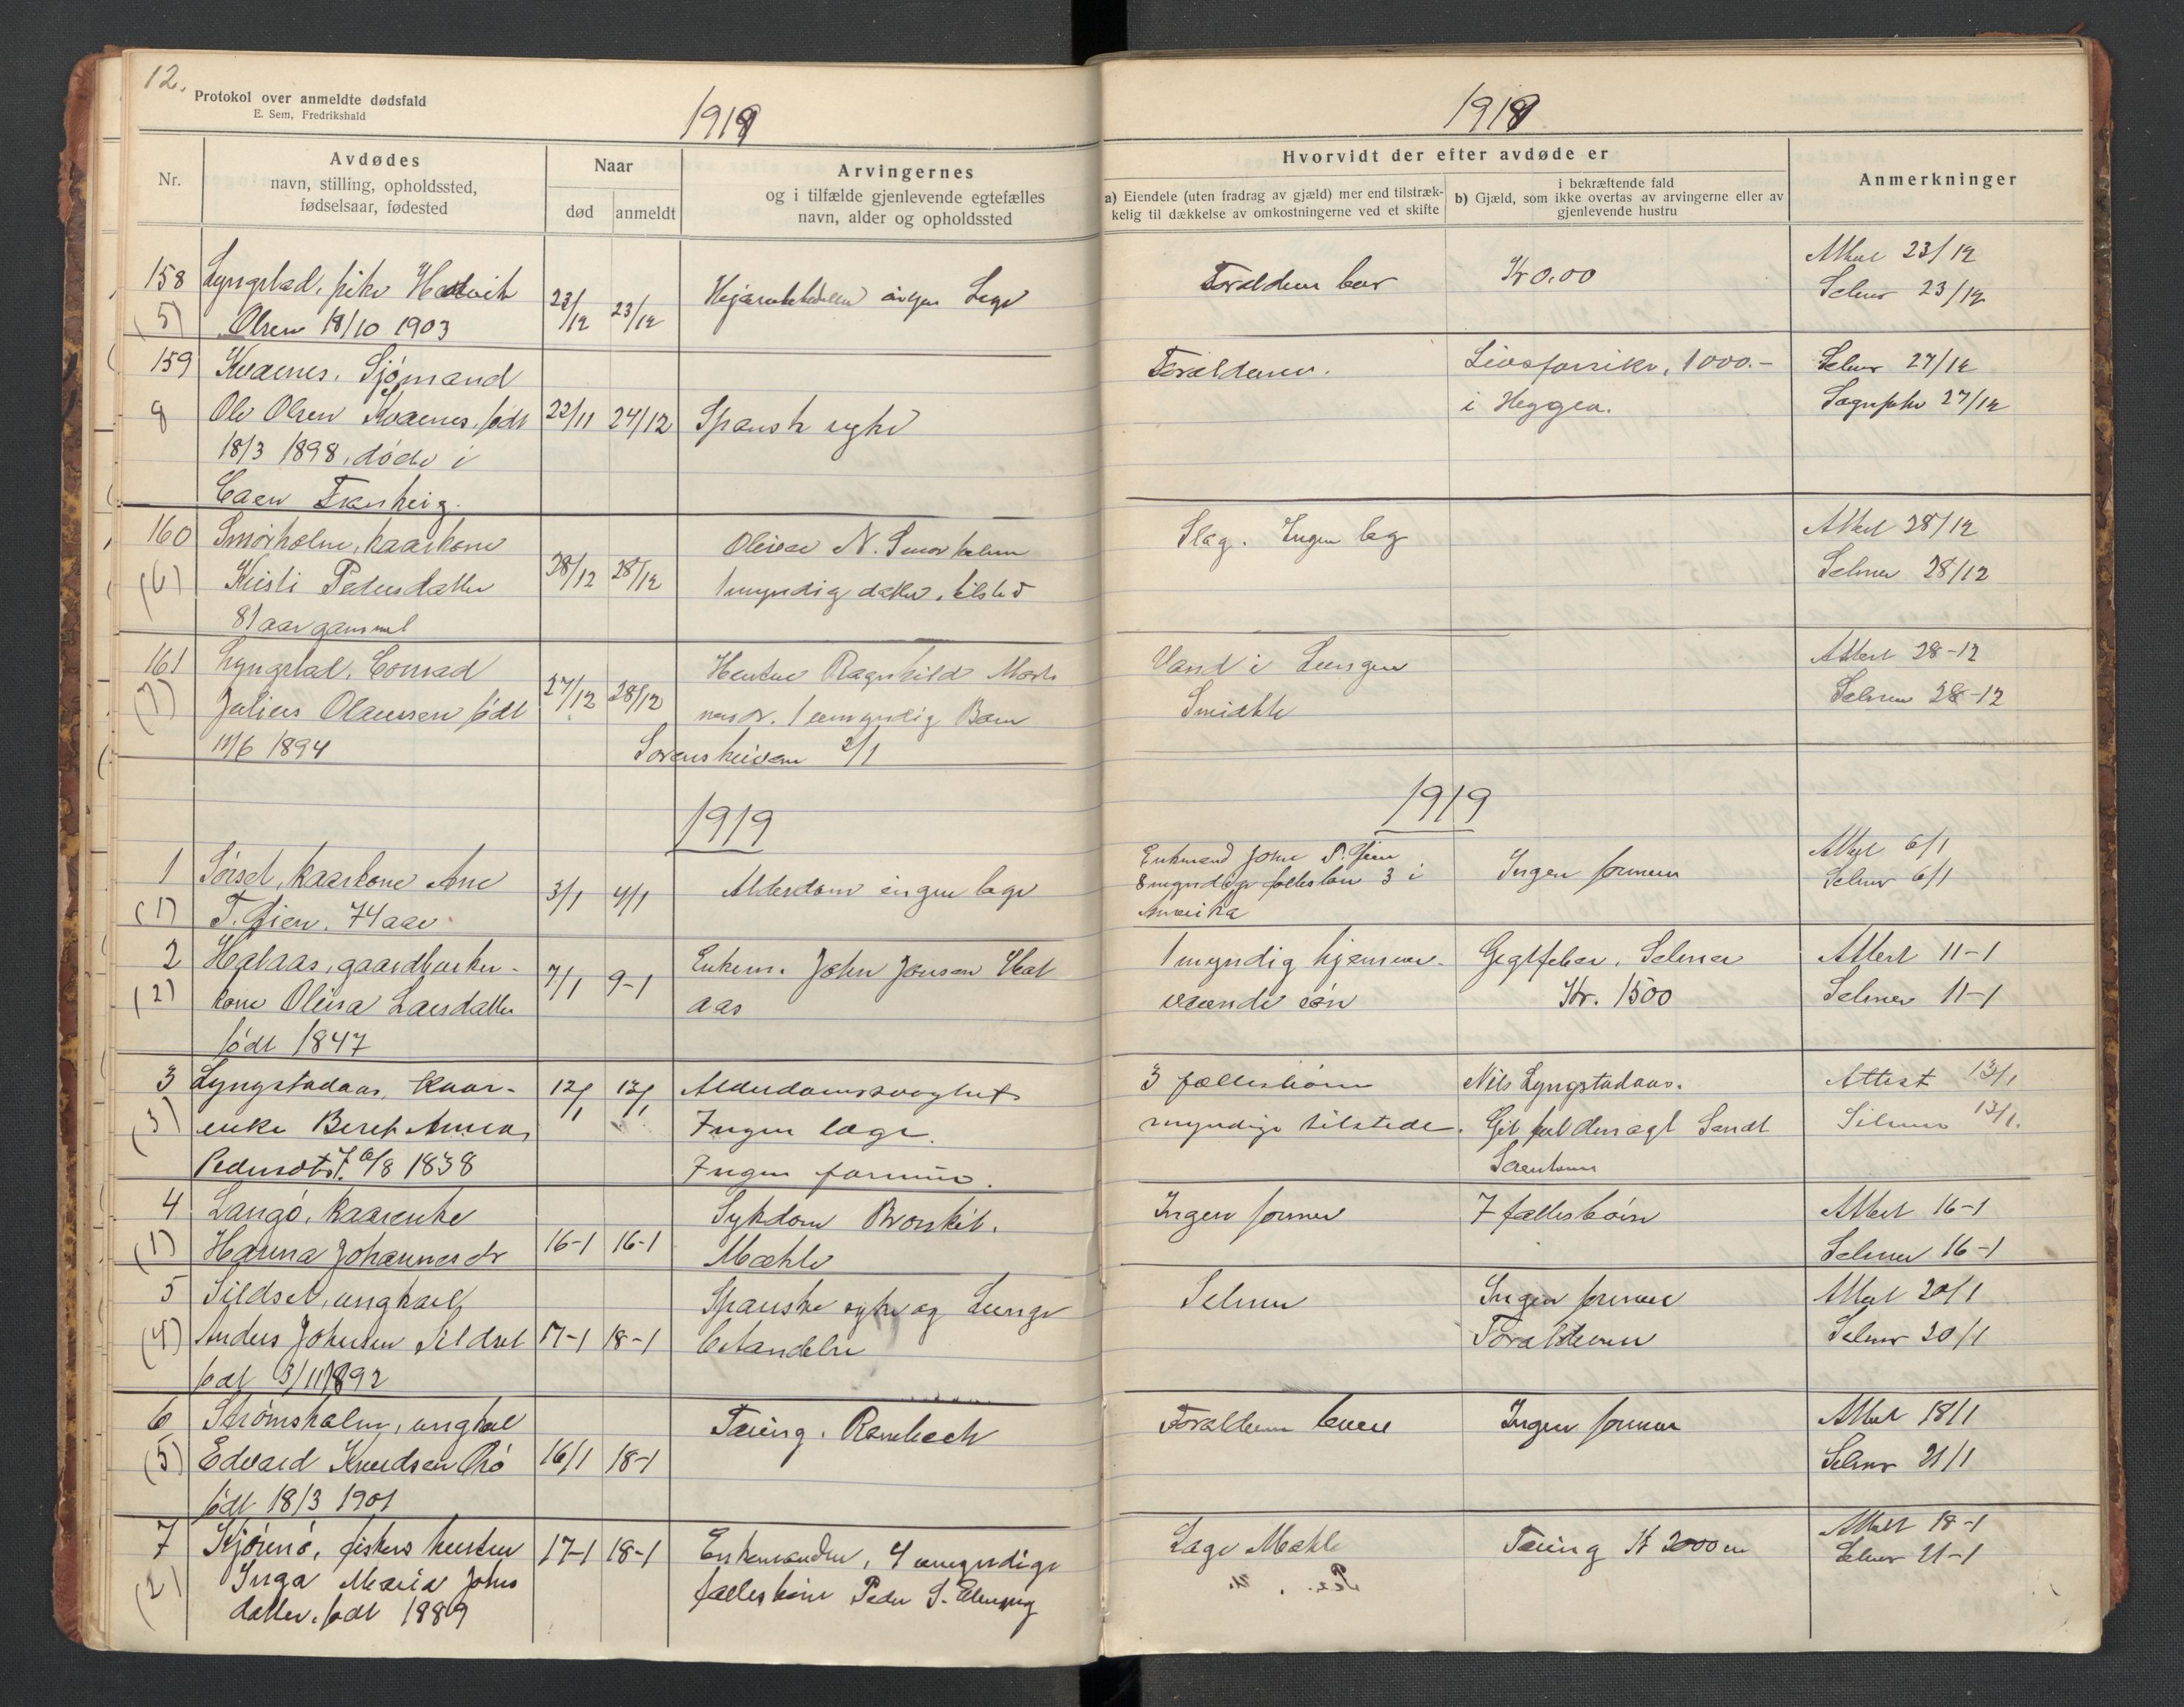 12.
Protokol over anmeldte dødsfald
E. Sem, Fredrikshald
1918
Nr.
Avdødes
navn, stilling, opholdssted,
fødselsaar, fødested
Naar
død
anmeldt
Arvingernes
og i tilfælde gjenlevende egtefælles
navn, alder og opholdssted
158
(5)
Lyngstad, pike
Olsen 18/10 1903
23/12
23/12
ingen Lege
159
8
Kvaenes. Sjømand
Ole Olsen Kvaenes, født
18/3 1898, døde i
Caen Frankrig.
22/11
24/12
Spansk syke
160
(6)
Smørholm, kaarkone
Kristi Pedersdatter
81 aar gammel
28/12
28/12
N. Smørholm
1 myndig datter, tilsted
161
(7)
Lyngstad, Conrad
Julius Olaussen født
1894
27/12
28/12
Hustru Ragnhild
1 umyndig Barn
Sorenskriveren 2/1
1919
1
(1)
Sørset, kaarkone Ane
T. Gien. 74 aar.
3/1
4/1
Alderdom ingen lege
2
(2)
Halaas, gaardbruker-
kone Olina Larsdatter
født 1847
7/1
9-1
Enkem. John Jonsen Hal
aas
3
(3)
Lyngstadaas, Kaar-
enke Beret Anna
Pedersdtr. f. 6/8 1838
12/1
13/1
Alderdomssvaghet
Ingen læge.
Ingen formue.
4
(1)
Langø, kaarenke
Hanna Johannesdr
16-1
16-1
Sykdom Bronkit.
Mæhle
5
(4)
Sildset, ungkarl
Anders Johnsen Sildset
født 3/11 1892
17-1
18-1
Spanske syke og Lunge
betændelse
6
(5)
Strømsholm, ungkarl
Edvard Knudsen Rø
født 18/3 1901
16/1
18-1
Tæring. Rambech
7
(2)
Kjørsnø, fiskers hustru
Inga Maria Johns
datter, født 1889
17-1
18-1
Enkemanden, 4 umyndige
fælles børn Peder S.
1918
Hvorvidt der efter avdøde er
a) Eiendele (uten fradrag av gjæld) mer end tilstræk-
kelig til dækkelse av omkostningerne ved et skifte
i bekræftende fald
b) Gjæld, som ikke overtas av arvingerne eller av
gjenlevende hustru
Anmerkninger
Forældrene lever
Kr 0.00
Attest 23/12
Selmer 23/12
Forældrene.
Livsforsikr. 1000.-
i Heggen.
Selmer 27/12
27/12
Slag. Ingen læg
Attest 28/12
Selmer 28/12
Vand i Lungen
Smidth
Attest 28-12
Selmer 28-12
1919
Enkmand John T. Gien
8 myndige fællesbørn 3 i
Amerika
Ingen formue
Attest 6/1
Selmer 6/1
1 myndig hjemme-
værende søn
Gigtfeber. Selmer
Kr. 1500
Attest 11-1
Selmer 11-1
3 fællesbørn
myndige tilstede.
Nils Lyngstadaas.
Attest 13/1
Selmer 13/1.
Ingen formue
7 fællesbørn
Attest 16-1
Selmer 16-1
Selmer
Ingen formue
Forældrene
Attest 20/1
Selmer 20/1
Forældrene lever
Ingen formue
Attest 18/1
Selmer 21/1
Læge Mæhle
Tæring Kr 2000
Attest 18-1
Selmer 21-1